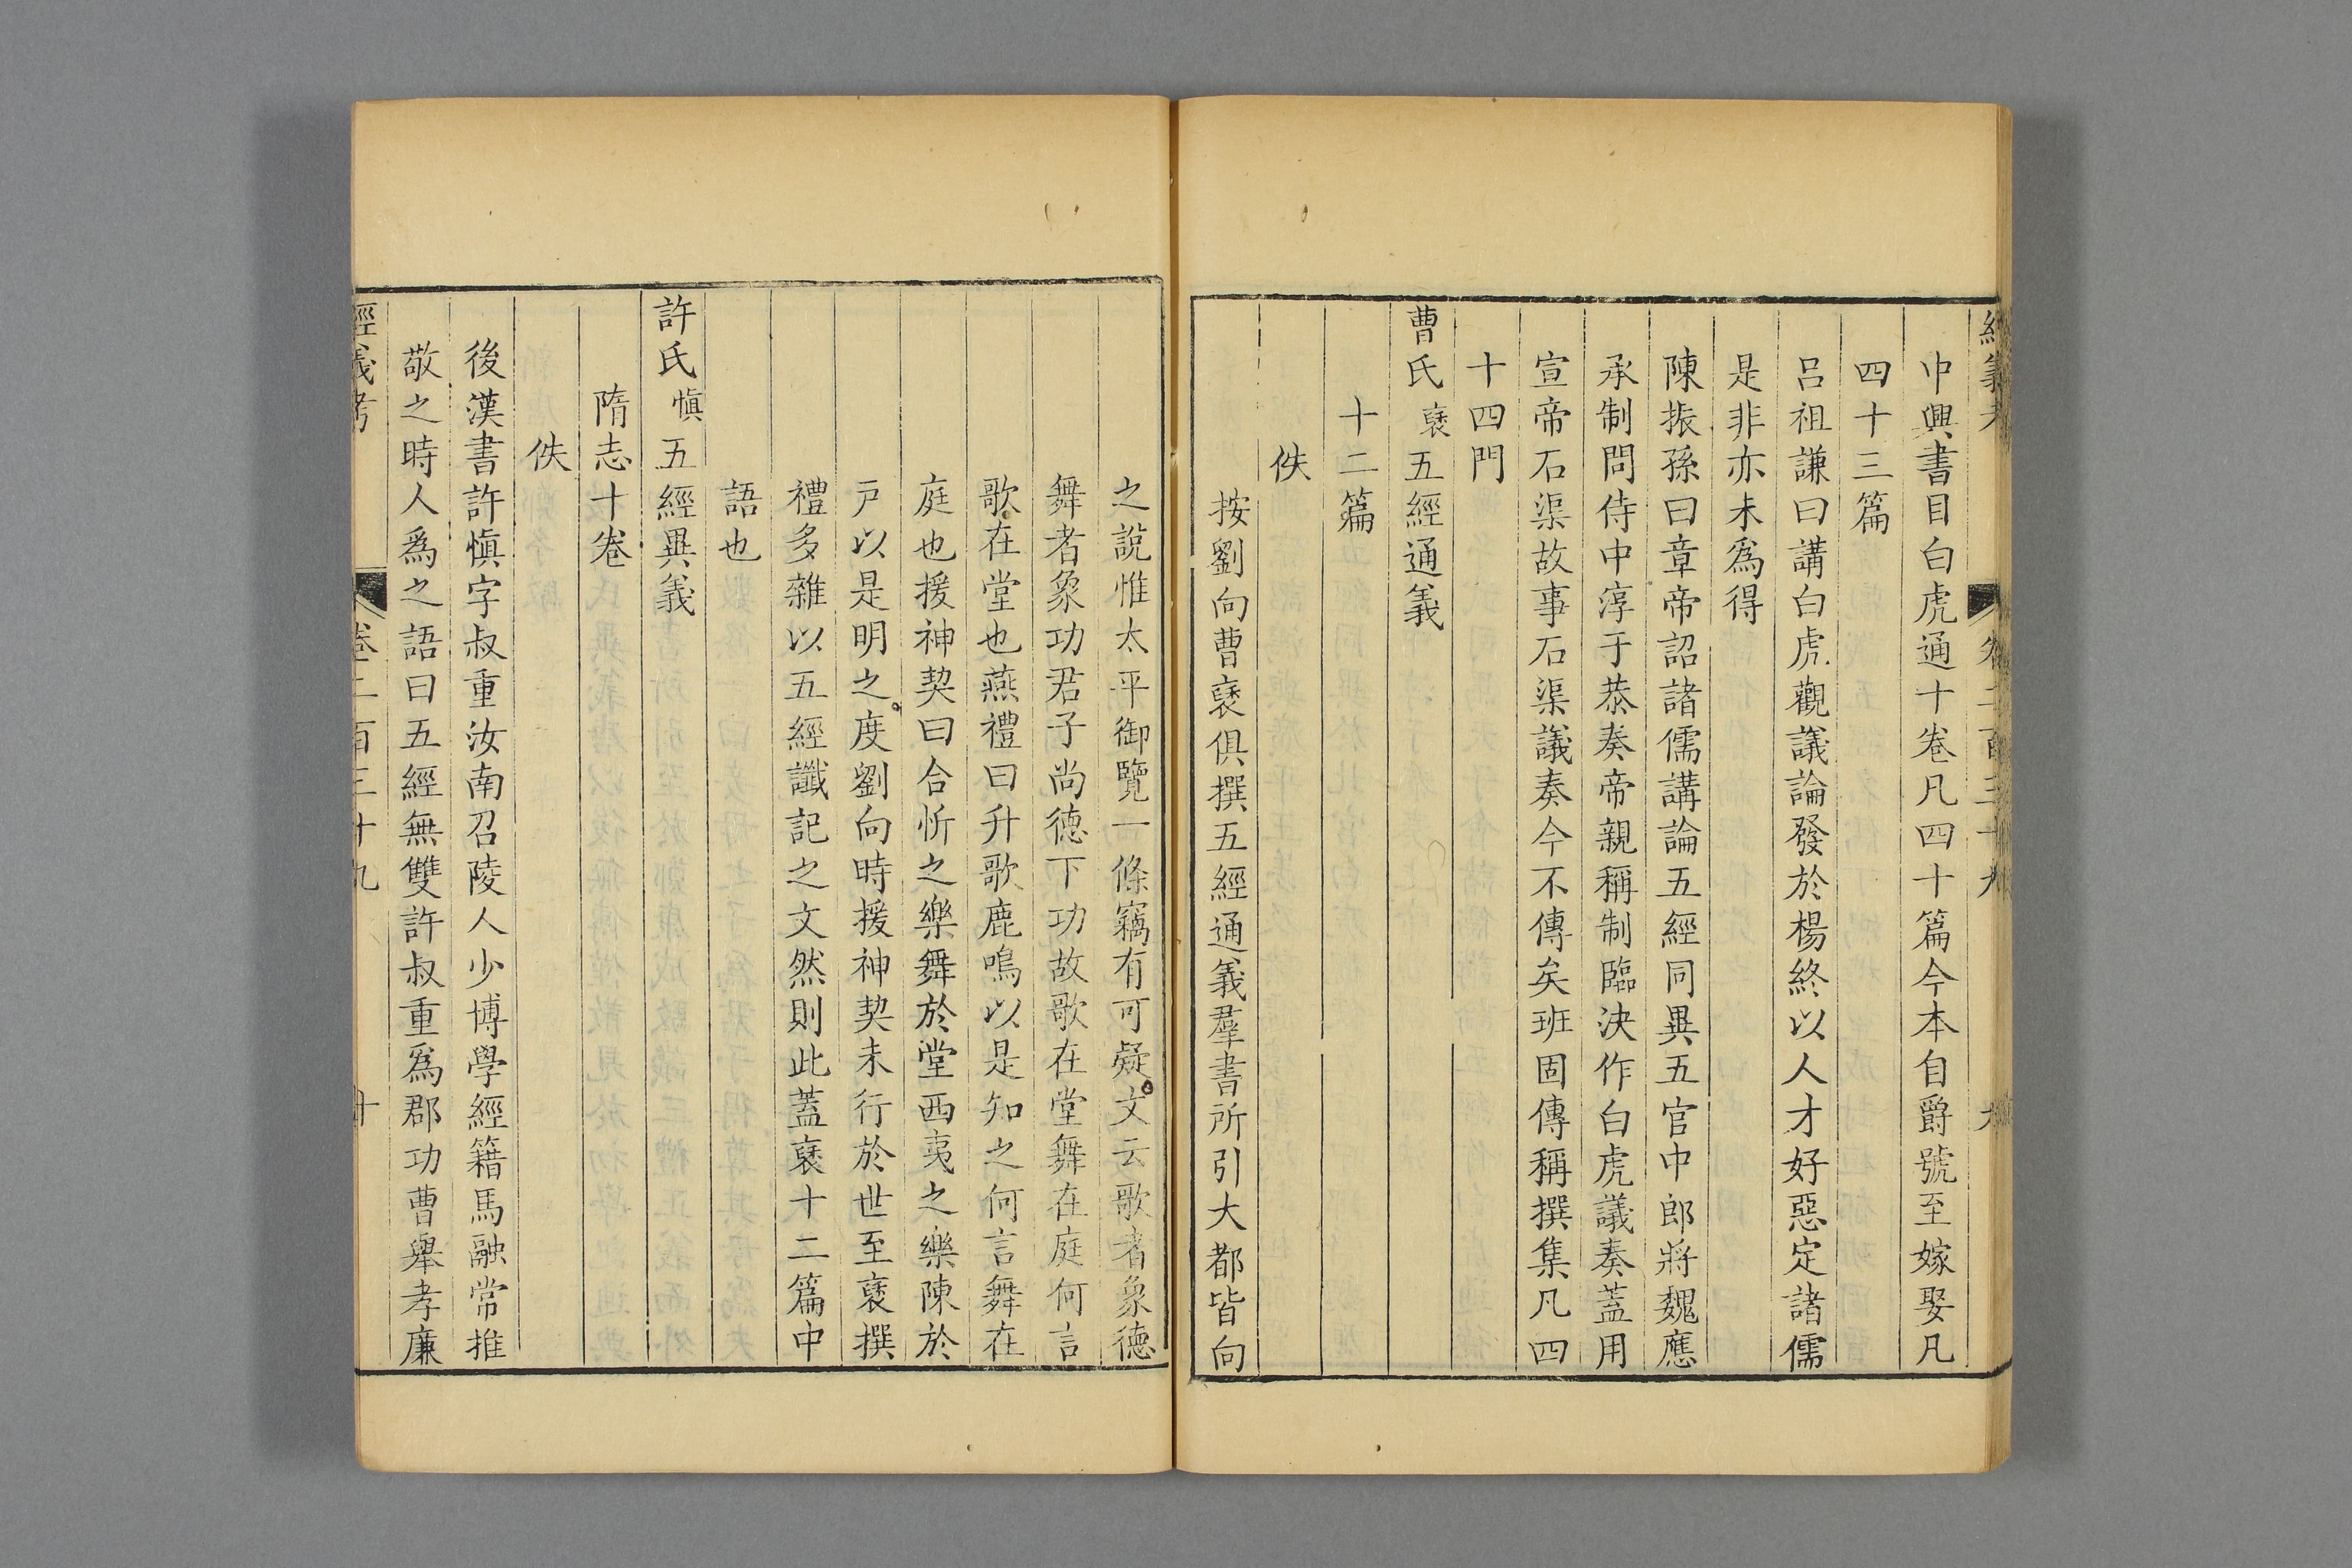 經義考 卷二百三十九 九
中興書目白虎通十卷凡四十篇今本自爵號至嫁娶凡
四十三篇
呂祖謙曰講白虎觀議論發於楊終以人才好惡定諸儒
是非亦未爲得
陳振孫曰章帝詔諸儒講論五經同異五官中郎將魏應
承制問侍中淳于恭奏帝親稱制臨決作白虎議奏蓋用
宣帝石渠故事石渠議奏今不傳矣班固傳稱撰集凡四
十四門
曹氏褎五經通義
十二篇
佚
按劉向曹褎俱撰五經通義羣書所引大都皆向
之說惟太平御覽一條竊有可疑文云歌者象德
舞者象功君子尚德下功故歌在堂舞在庭何言
歌在堂也燕禮曰升歌鹿鳴以是知之何言舞在
庭也援神契曰合忻之樂舞於堂西夷之樂陳於
戸以是明之度劉向時援神契未行於世至褎撰
禮多雜以五經讖記之文然則此蓋褎十二篇中
語也
許氏慎五經異義
隋志十卷
佚
後漢書許慎字叔重汝南召陵人少博學經籍馬融常推
敬之時人爲之語曰五經無雙許叔重爲郡功曹舉孝廉
經義考 卷二百三十九 十